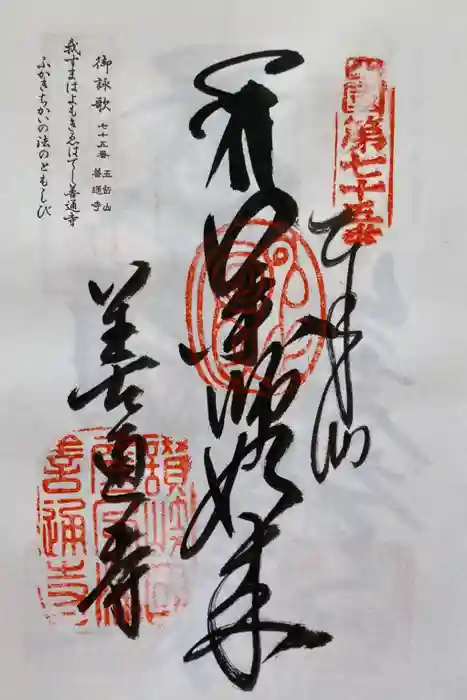 四国第七十五番
如来
善通寺
讃岐国
屏風浦
善通寺
御詠歌 七十五番 五岳山 善通寺
我すまはよもきゑはてし善通寺
ふかきちかひの法のともしび